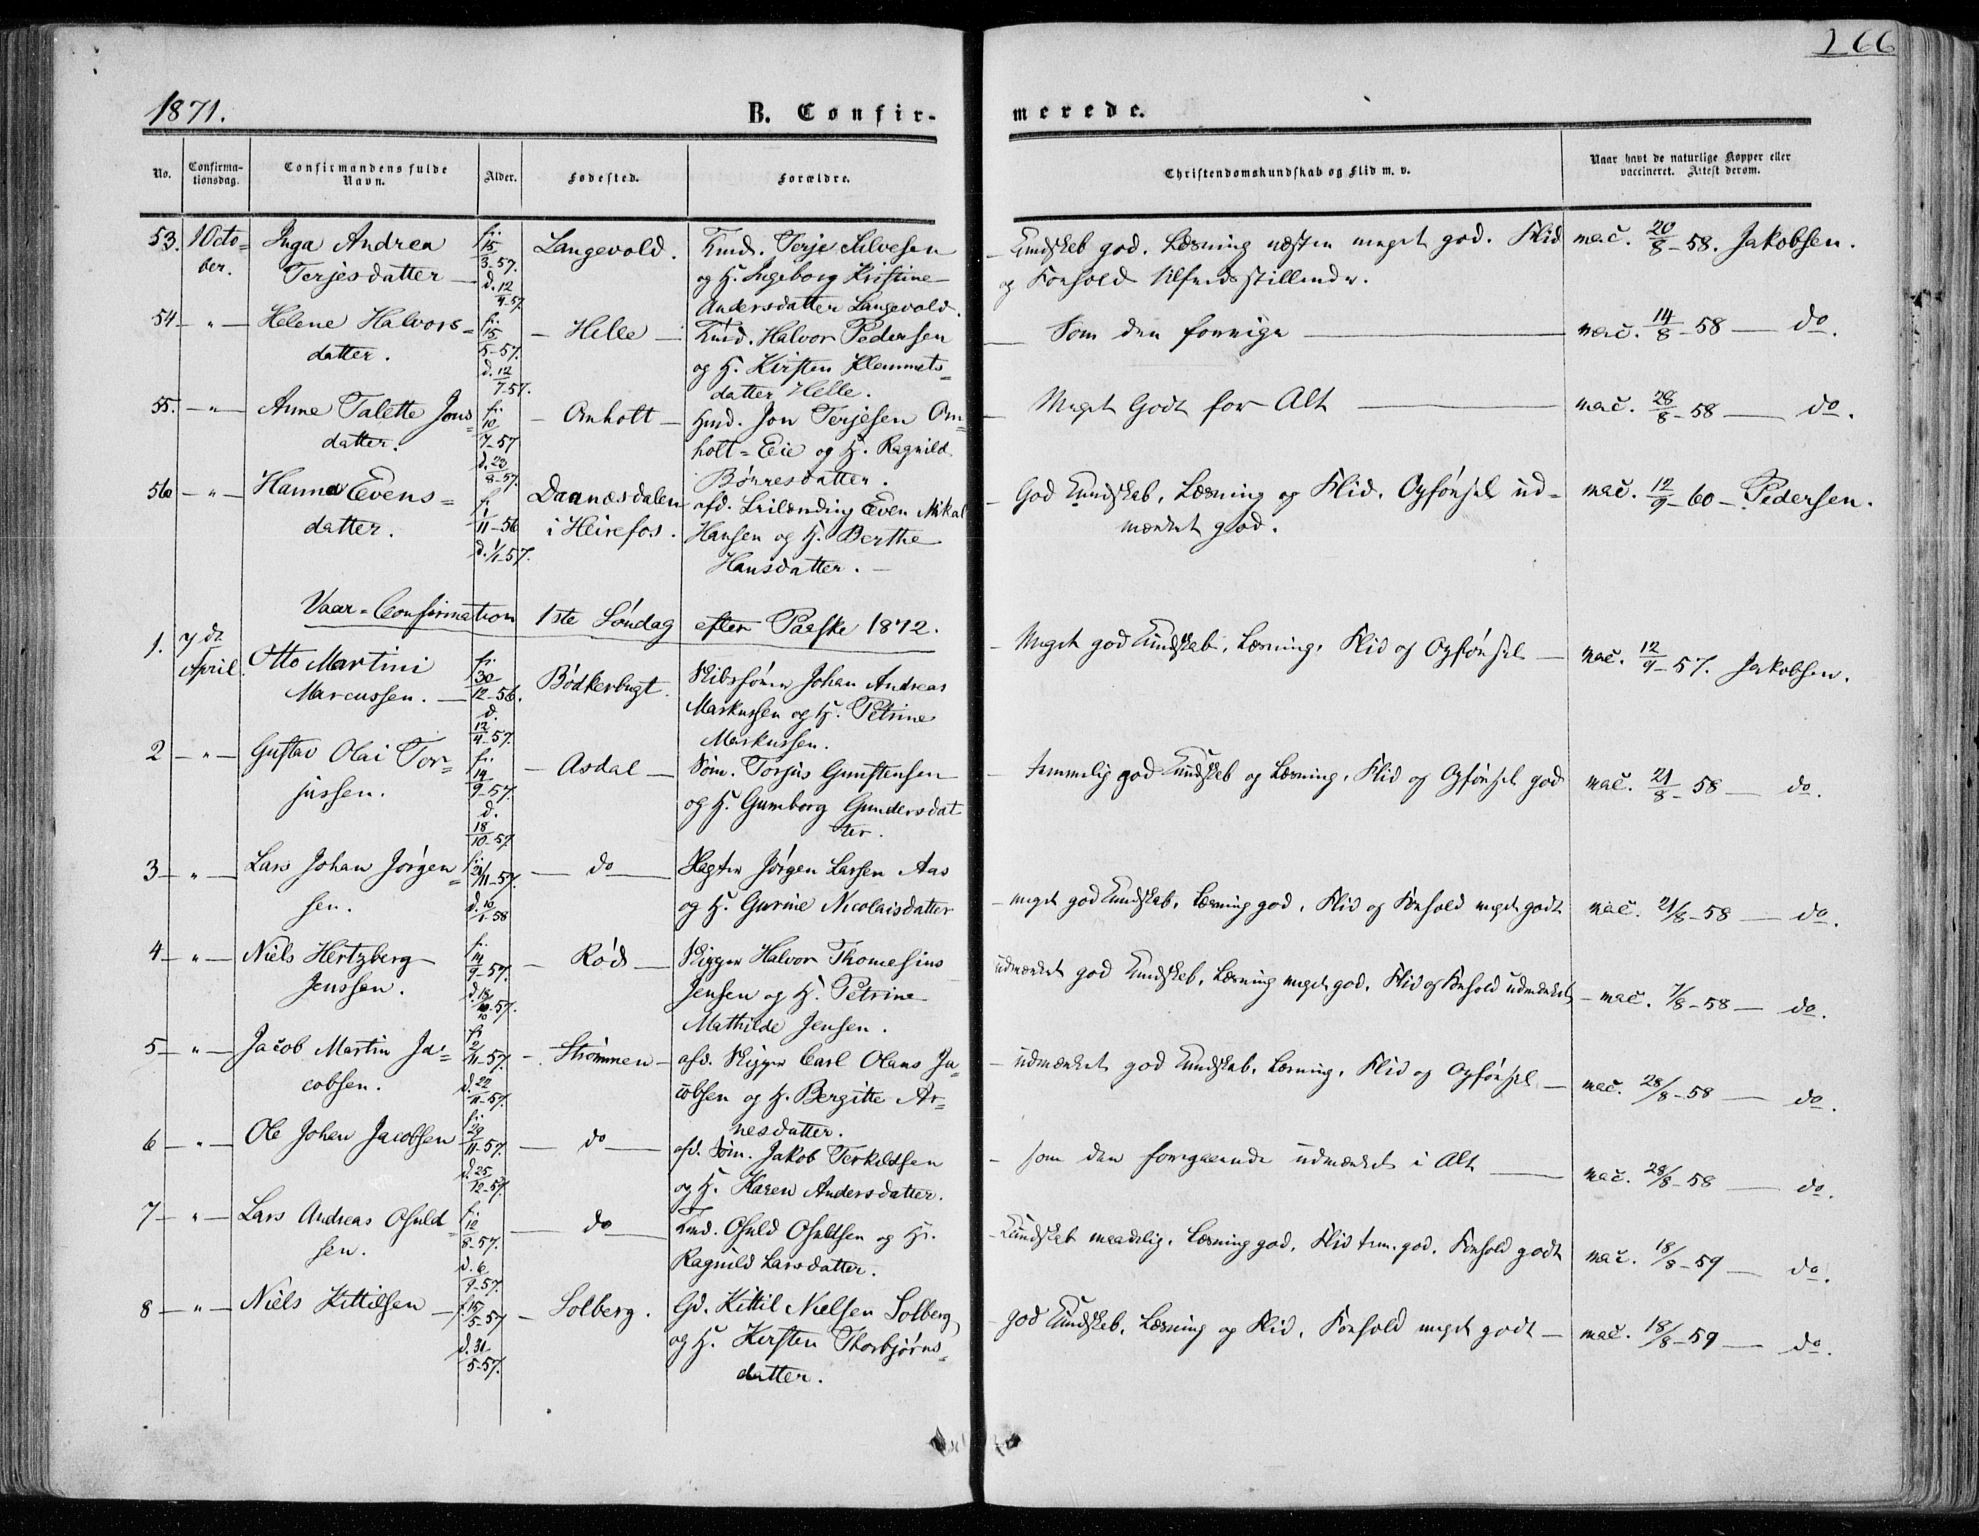 266
1871.
B. Confir-
merede.
No.
Confirma-
tionsdag.
Confirmandens fulde
Navn.
Alder.
Fødested.
Forældre.
Christendomskundskab og Flid m. v.
Naar havt de naturlige Kopper eller
vaccineret. Attest derom.
53. 1 Octo- Inga Andrea f. 15/3-57. Langevold. Gmd. Terje Silvesen Kundskab god. Læsning næsten meget god. Flid vac. 20/8-58. Jakobsen.
ber. Terjesdatter d. 12/4-57. og H. Ingeborg Kirstine og Forhold tilfredsstillende.
Andersdatter Langevold.
54 - " - Helene Halvors= f. 15/5-57. - Helle - Gmd. Halvor Pedersen Som den forrige vac. 14/8-58 - do.
datter. d. 12/7-57. og H. Kirsten Klemmets=
datter Helle.
55. - " - Anne Talette Jons= f. 10/7-57 - Omholt - Hmd. Jon Terjesen Om= Meget Godt for Alt vac. 28/8-58 - do.
datter. d. 23/8-57. holt=Eie og H. Ragnild
Børresdatter.
56 - " - Hanna Evens= f. 1/11-56 Daanæsdalen afd. Leilænding Even Nikal God Kundskab, Læsning og Flid. Opførsel ud- vac. 12/9-60 - Pedersen.
datter. d. 1/1-57. i Heirefos. Hansen og H. Berthe mærket god.
Hansdatter. -
Vaar=Confirmation 1ste Søndag efter Paaske 1872.
1. 7de April. Otto Martini f. 30/12-56. Bødkerbugt. Skibsfører Johan Andreas Meget god Kundskab, Læsning, Flid og Opførsel - vac. 12/9-57. Jakobsen.
Marcussen. - d. 12/4-57. Markussen og H. Petrine
Markussen.
2 - " - Gustav Olai Tor= f. 14/9-57. - Asdal - Søm. Torjus Gunstensen - temmelig god Kundskab og Læsning, Flid og Opførsel god vac. 21/8-58 - do.
jussen. d. 18/10-57. og H. Gumborg Gundersdat
ter.
3 - " - Lars Johan Jørgen= /11-57. - do - Jørgen Larsen Aas - meget god Kundskab, Læsning god, Flid og Forhold meget godt vac. 21/8-58 - do.
sen. d. 10/1-58 og H. Gurine Nicolaisdatter
4 - " - Niels Hertzberg f. 14/9-57. - Rød - Skipper Halvor Thomesius udmærket god Kundskab, Læsning meget god, Flid og Forhold udmærket - vac. 7/8-58 - do.
Jenssen. d. 18/10-57. Jensen og H. Petrine
Mathilde Jensen.
5 - " - Jacob Martin Ja= f. 2/11-57. - Strømmen - afd. Skipper Carl Olaus Ja= - udmærket god Kundskab, Læsning, Flid og Opførsel - vac. 28/8-58 - do.
cobsen. d. 22/11-57. cobsen og H. Bergitte Ar=
nesdatter.
6 - " - Ole Johan Jacobsen f. 29/11-57. - do - afd. Søm. Jakob Terkildsen - som den foregaaende udmærket i Alt - vac. 28/8-58 - do.
d. 25/12-57. og H. Karen Andersdatter.
7 - " - Lars Andreas Osuld= f. 10/8-57. - do - Gmd. Osuld Osuldsen og H. - Kundskab maadelig, Læsning god, Flid tem. god, Forhold godt vac. 18/8-59 - do.
sen. d. 6/9-57. Ragnild Larsdatter.
8 - " - Niels Kittilsen - f. 15/5-57 - Solberg. Gd. Kittil Nielsen Solberg - god Kundskab, Læsning og Flid, Forhold meget godt - vac. 18/8-59 - do.
d. 31/5-57. og H. Kirsten Thorbjørns=
datter.